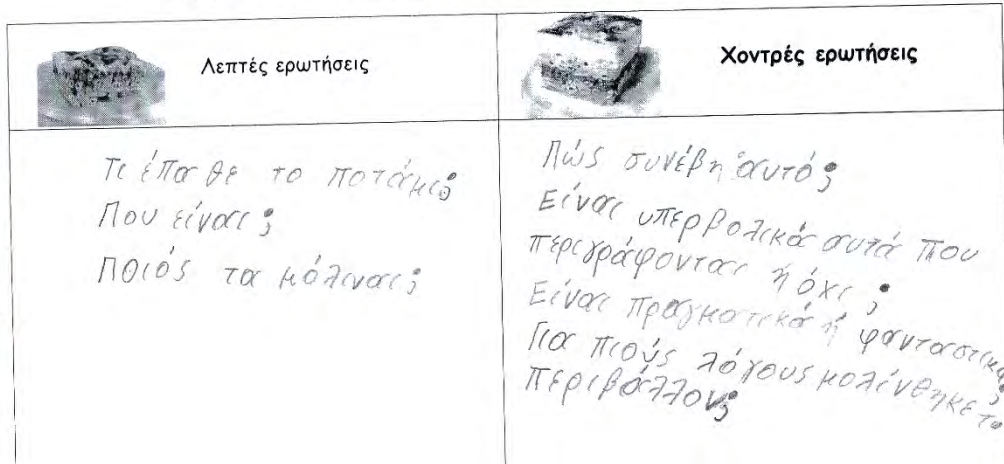 Λεπτές ερωτήσεις
Τι έπαθε το ποτάμι;
Που είναι;
Ποιός τα μόλιναι;
Χοντρές ερωτήσεις
Πώς συνέβη αυτό;
Είναι υπερβολικά αυτά που
περιγράφονται ή όχι;
Είναι πραγματικά ή φανταστικά;
Για πιούς λόγους μολίνθηκε το
περιβάλλον;